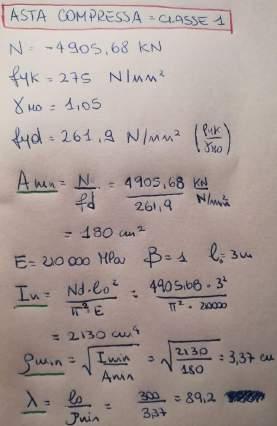 ASTA COMPRESSA = CLASSE 1
N = -4905,68 KN
fyk = 275 N/mm²
γM0 = 1,05
fyd = 261,9 N/mm² (fyk/γM0)
Amin = N/fd = 4905,68/261,9 KN/N/mm²
= 180 cm²
E = 210000 MPa β = 1 l₀ = 3m
In = Nd·l₀²/π² E = 4905,68·3²/π²·210000
= 2130 cm⁴
ρmin = √Imin/Amin = √2130/180 = 3,37 cm
λ = l₀/ρmin = 300/3,37 = 89,2